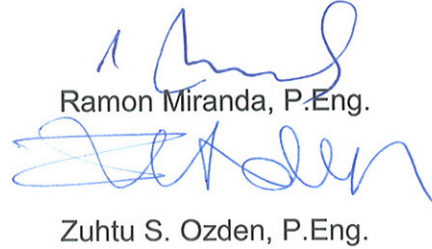 Ramon Miranda, P.Eng.
Zuhtu S. Ozden, P.Eng.